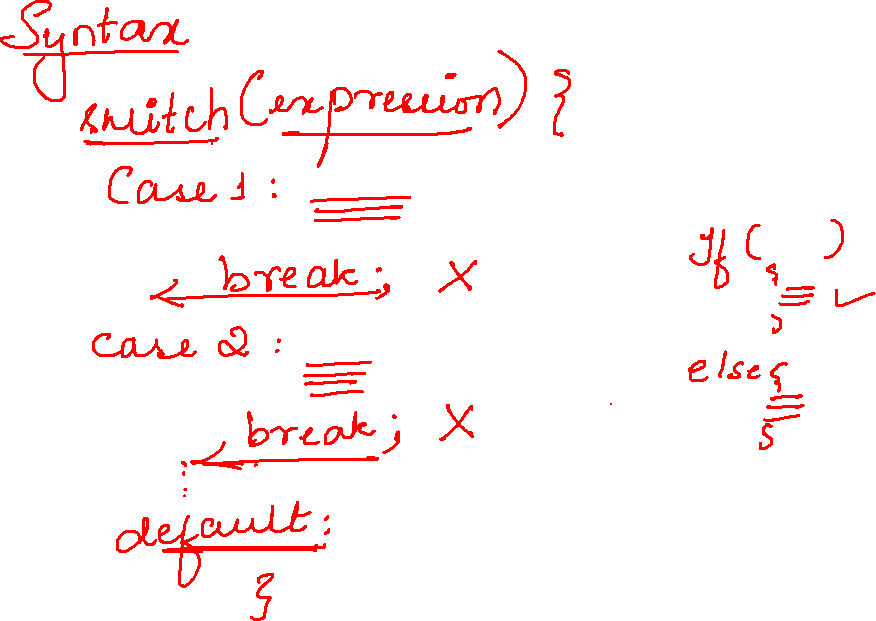 Syntax
switch (expression) {
Case 1 :
break; X
case 2 :
break; X
default :
}
If ( )
{
}
else {
}